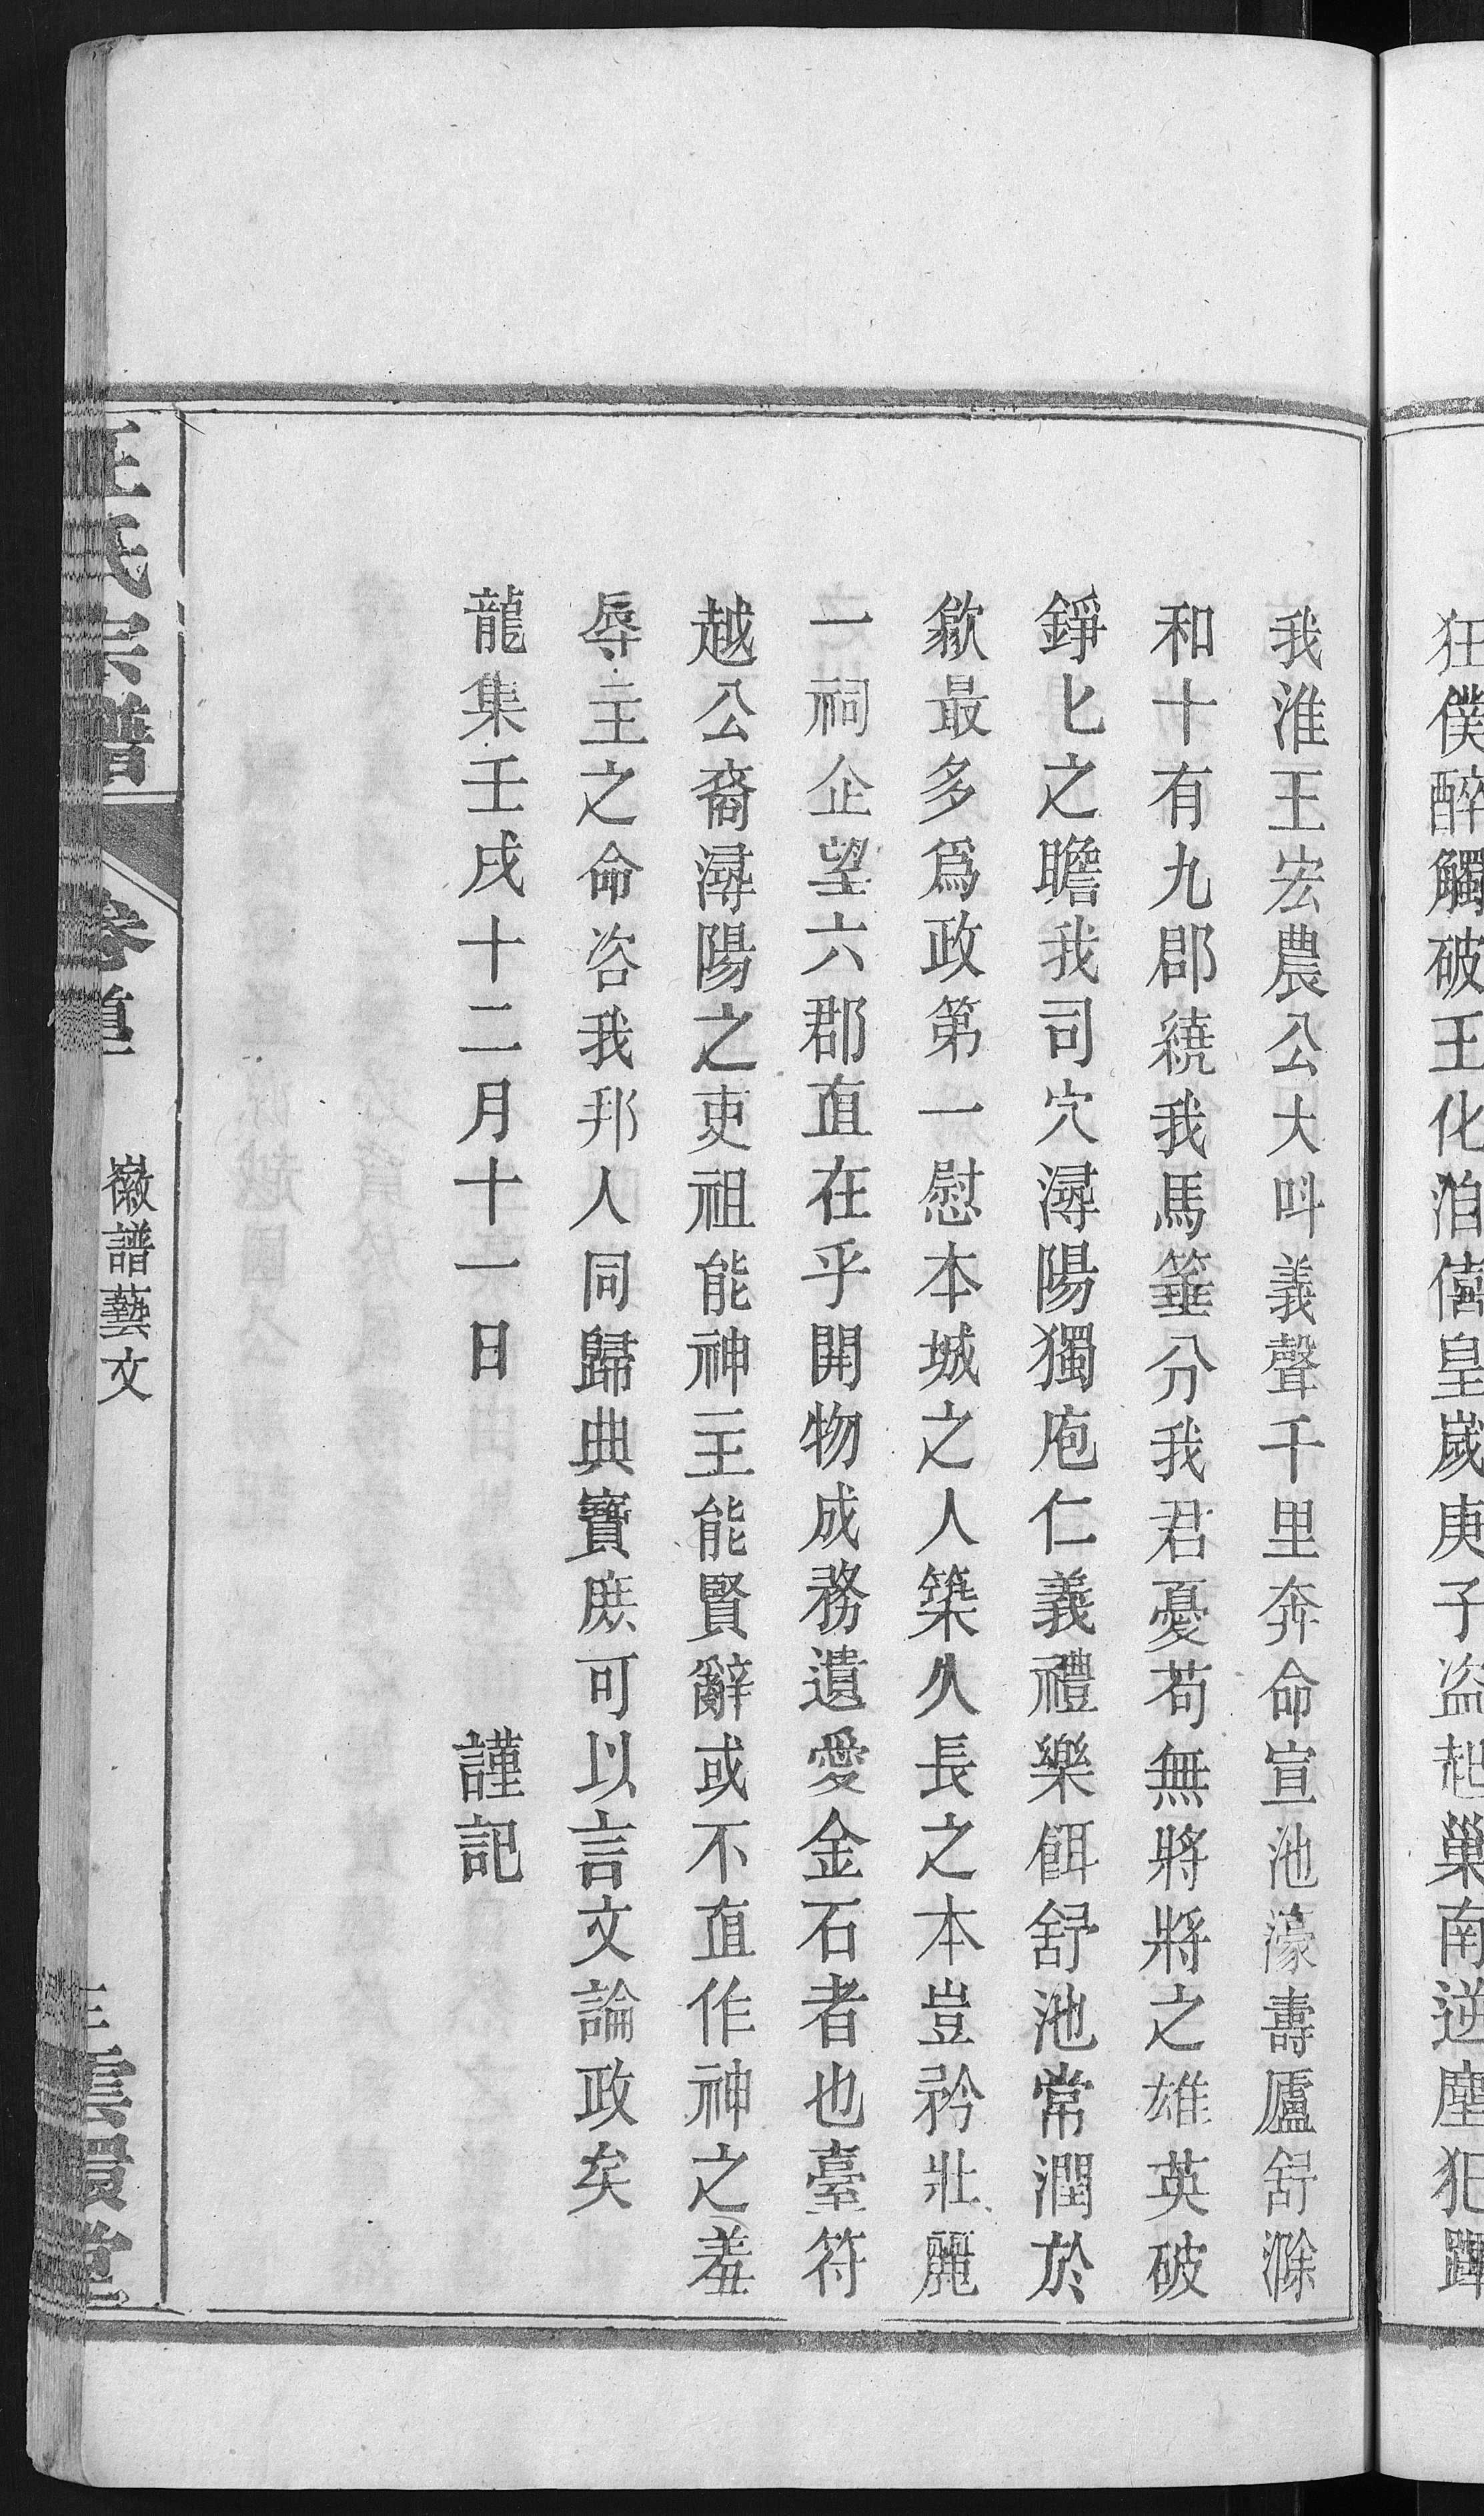 狂僕醉觸破王化洎僖皇歲庚子盜起巢南逆塵犯蹕
我淮王宏農公大呌義聲千里奔命宣池濠壽廬舒滁
和十有九郡繞我馬箠分我君憂苟無將將之雄英破
錚匕之瞻我司穴潯陽獨庖仁義禮樂餌舒池常潤於
歙最多爲政第一慰本城之人築久長之本豈矜壯麗
一祠企望六郡直在乎開物成務遺愛金石者也臺符
越公裔潯陽之吏祖能神主能賢辭或不直作神之羞
辱主之命咨我邦人同歸典寶庶可以言文論政矣
龍集壬戌十二月十一日 謹記
汪氏宗譜 卷首 徽譜藝文